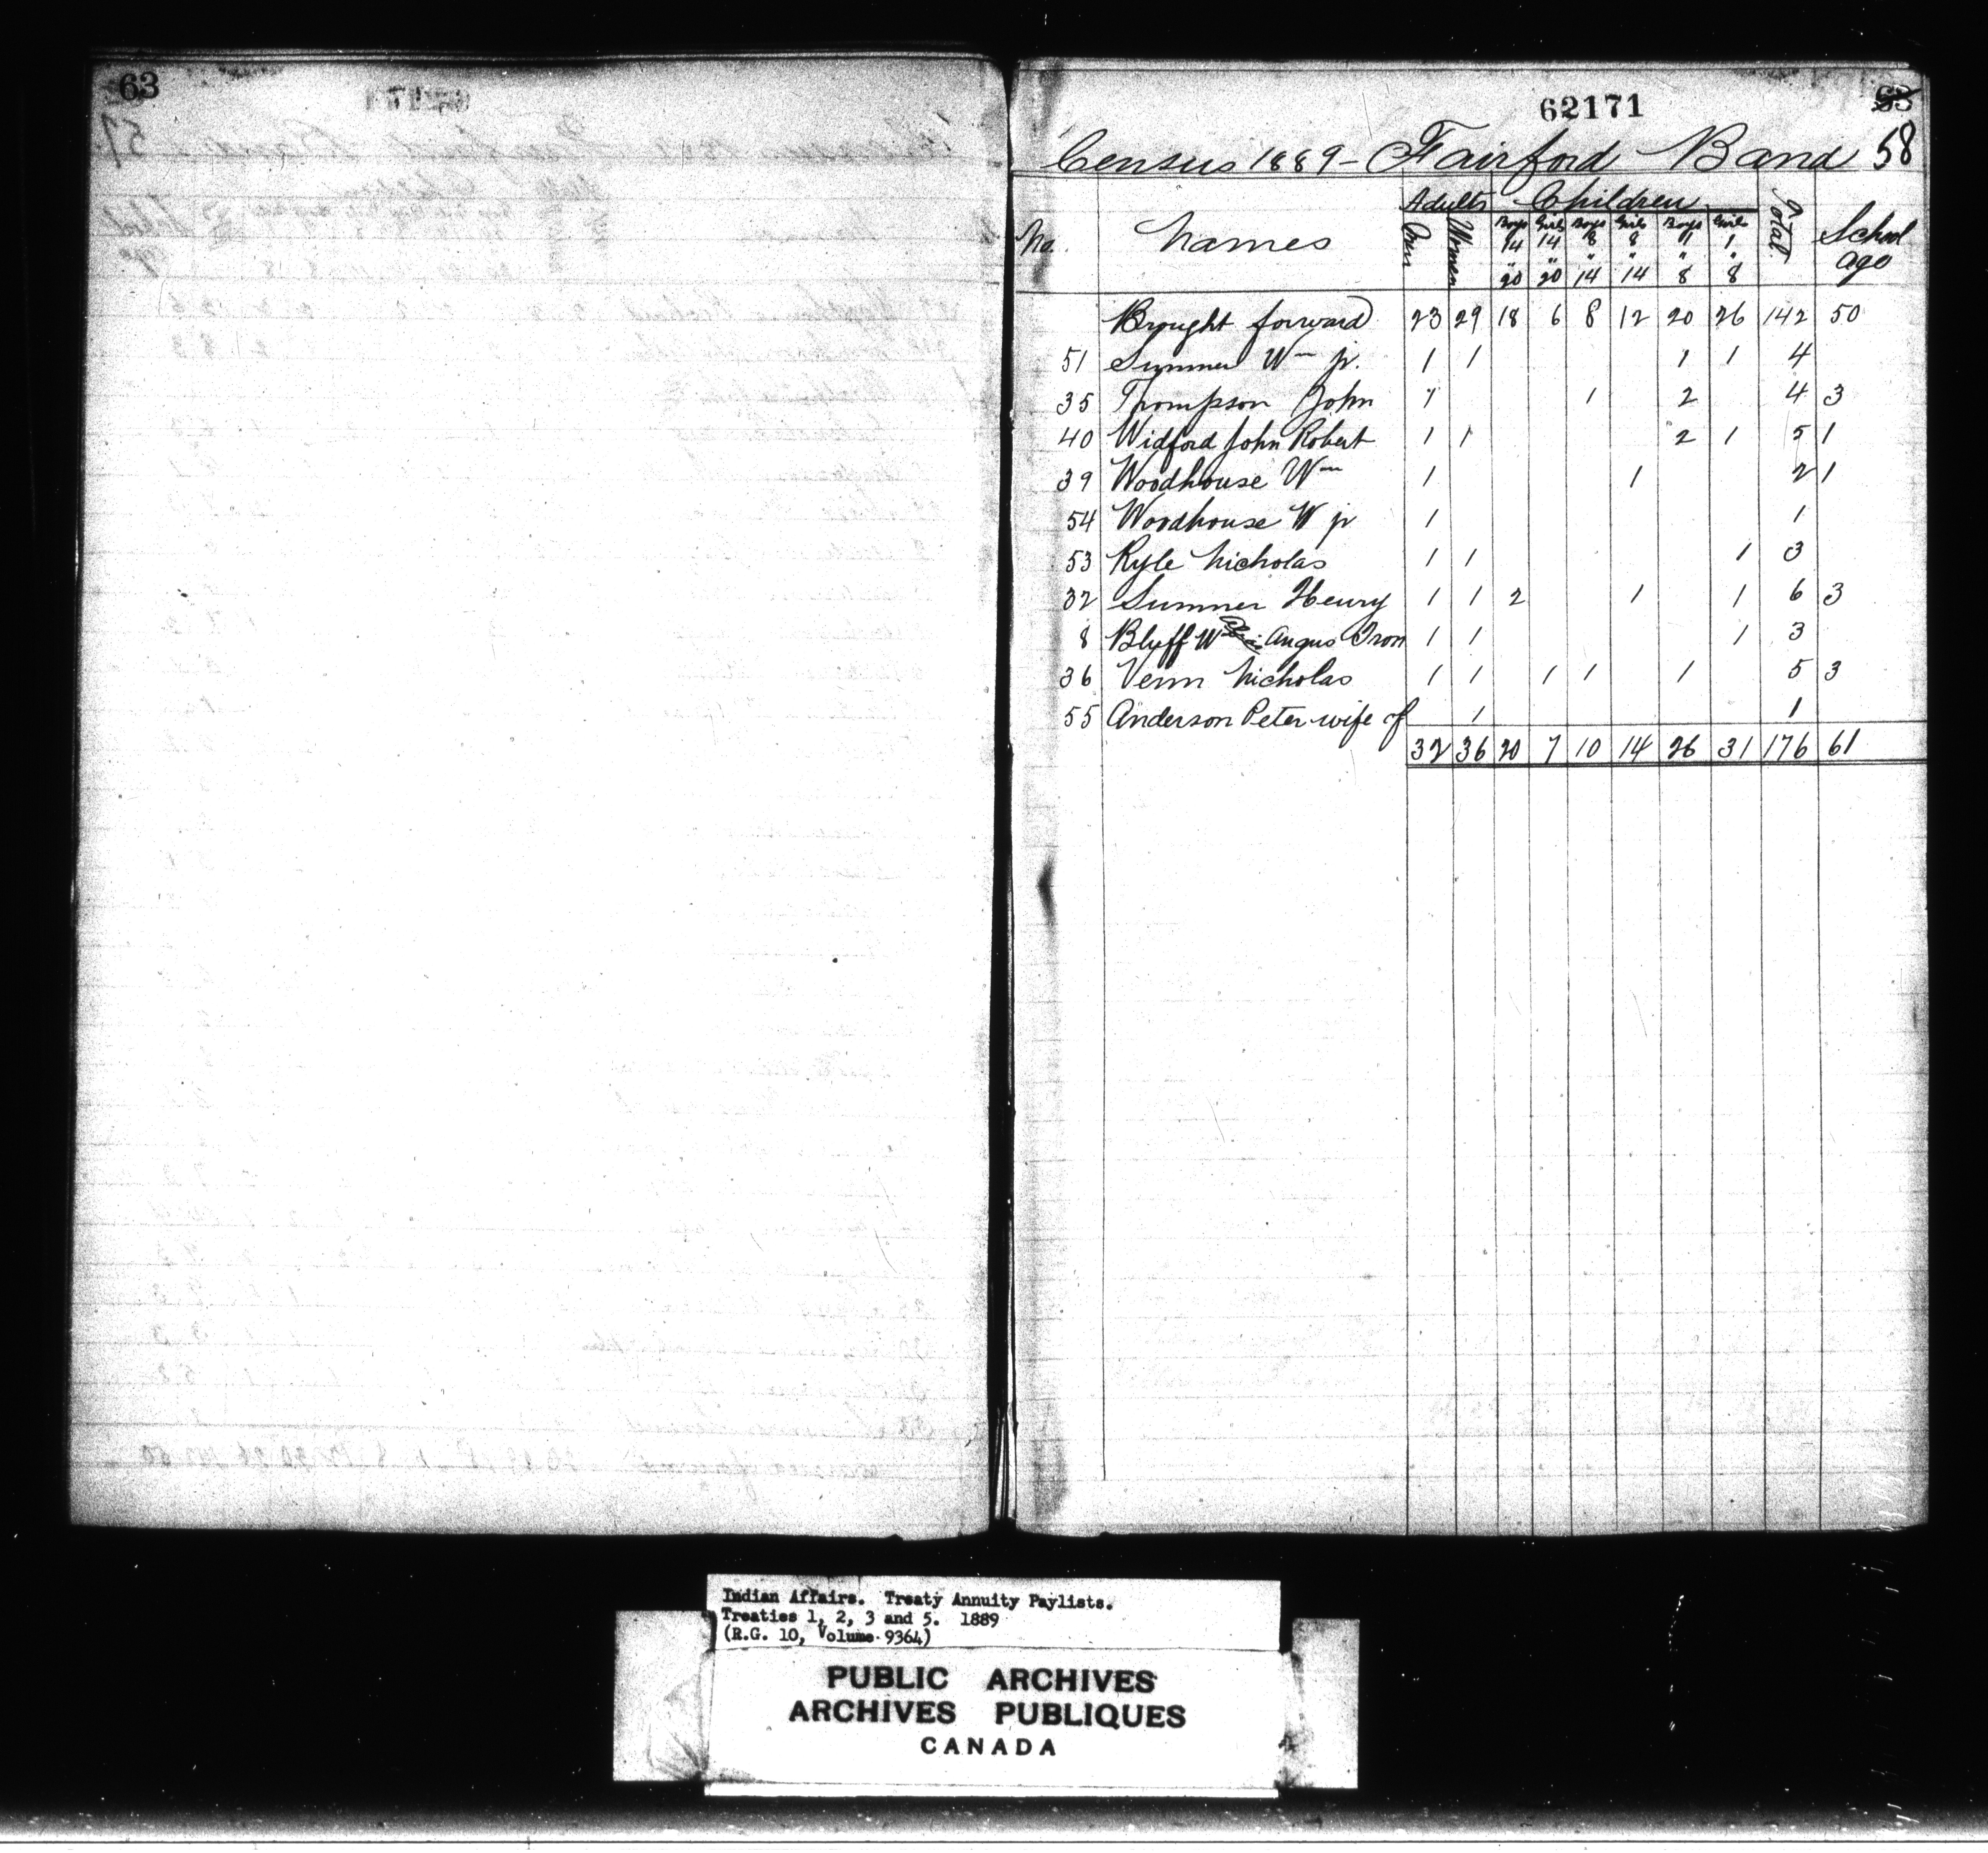 63
62171
58
Census 1889 - Fairford Band
Adults Children
No. Names Men Women Boys 14 " 20 Girls 14 " 20 Boys 8 " 14 Girls 8 " 14 Boys 1 " 8 Girls 1 " 8 Total School age
Brought forward 23 29 18 6 8 12 20 26 142 50
51 Summer Wm jr. 1 1 1 1 4
35 Thompson John 1 1 2 4 3
40 Widford John Robert 1 1 2 1 5 1
39 Woodhouse Wm 1 1 2 1
54 Woodhouse W jr 1 1
53 Kyle Nicholas 1 1 1 3
32 Summer Henry 1 1 2 1 1 6 3
8 Bluff Wm Angus Iron 1 1 1 3
36 Venn Nicholas 1 1 1 1 1 5 3
55 Anderson Peter wife of 1 1
32 36 20 7 10 14 26 31 176 61
Indian Affairs. Treaty Annuity Paylists.
Treaties 1, 2, 3 and 5. 1889
(R.G. 10, Volume 9364)
PUBLIC ARCHIVES
ARCHIVES PUBLIQUES
CANADA